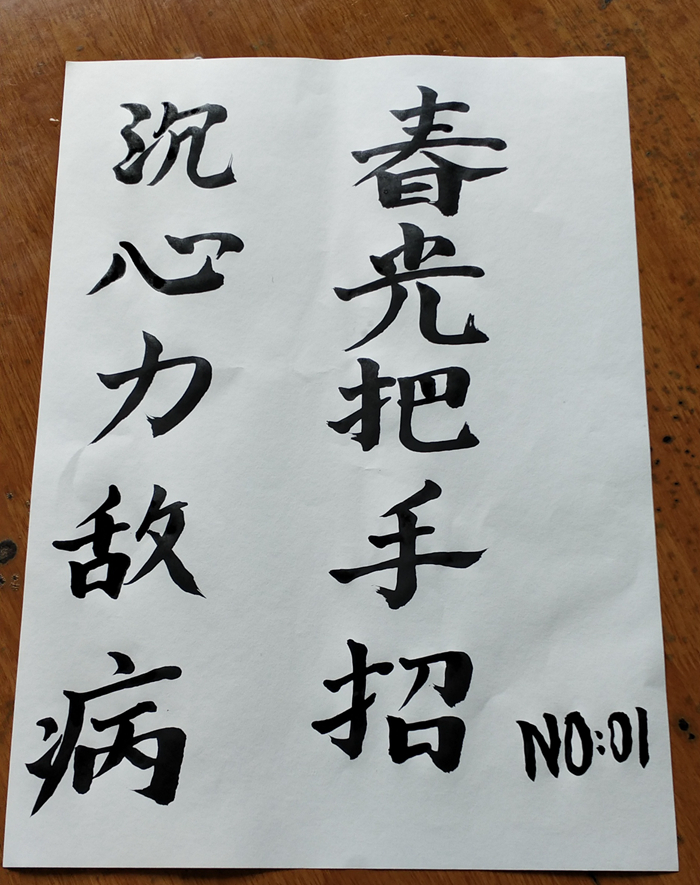 春光把手招
沉心力敌病
NO:01